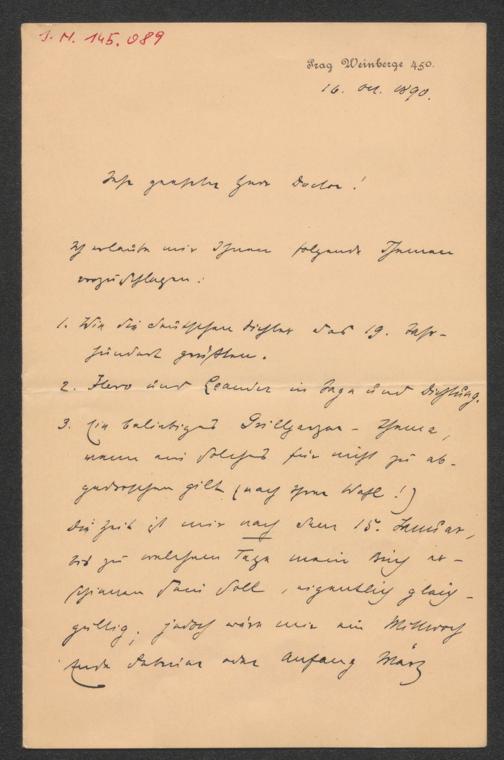 J. N. 145.089
Prag Weinberge 450.
16. Okt. 1890.
Sehr geehrter Herr Doctor!
Ich erlaube mir Ihnen folgende Themen
vorzuschlagen:
1. Wie die deutschen Dichter des 19. Jahr-
hundert grüßten.
2. Hero und Leander in Sage und Dichtung.
3. Ein beliebiges Grillparzer-Thema,
wenn ein solches für nicht zu ab-
gedroschen gilt (nach Ihrer Wahl!)
Die Zeit ist mir nach dem 15. Januar,
bis zu welchem Tage mein Buch er-
schienen sein soll, eigentlich gleich-
gültig; jedoch wäre mir ein Mittwoch
Ende Februar oder Anfang März